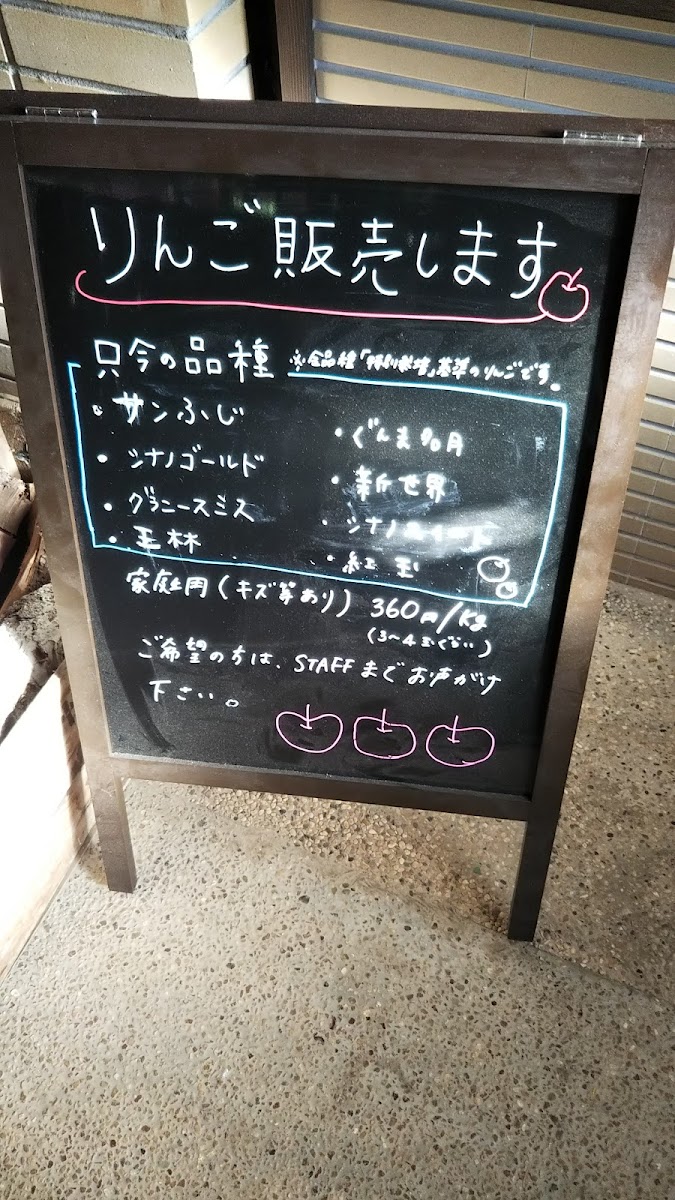 りんご販売します
只今の品種 ※全品種「特別栽培」基準のりんごです。
・サンふじ
・シナノゴールド
・グラニースミス
・王林
・ぐんま名月
・新世界
・シナノスイート
・紅玉
家庭用(キズ等あり) 360円/kg
(3〜4玉ぐらい)
ご希望の方は、STAFFまでお声がけ
下さい。